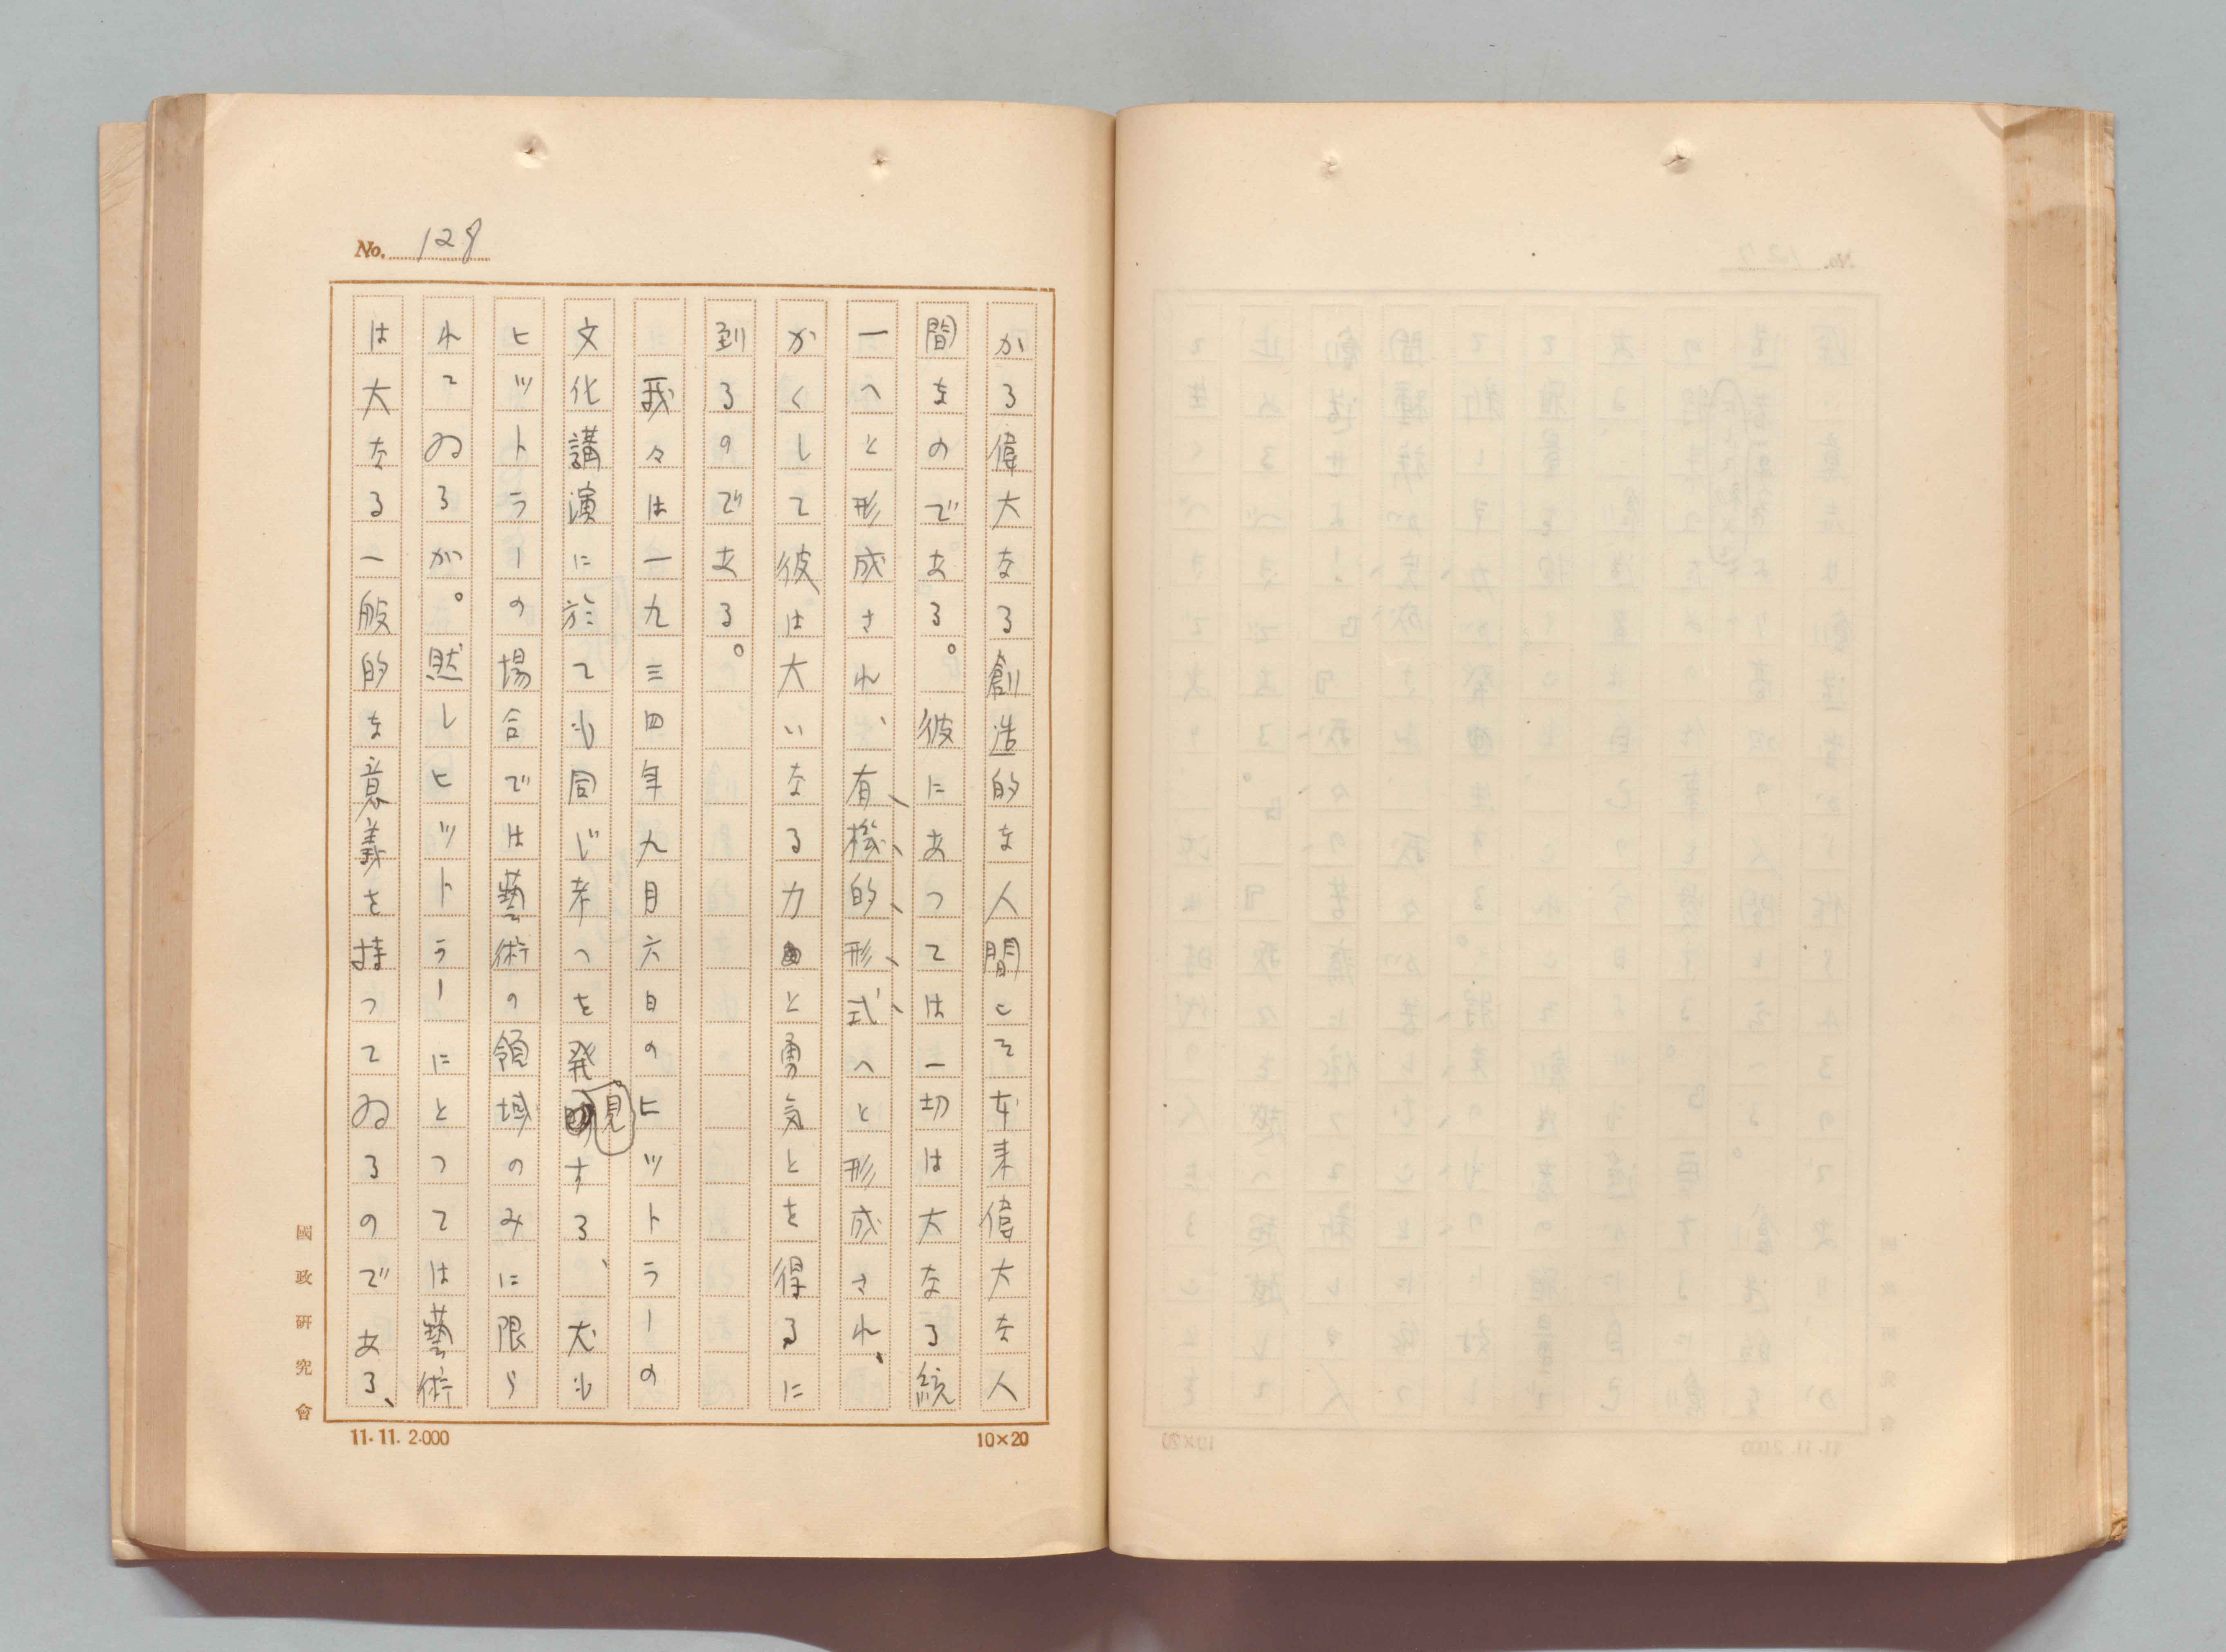 No. 128
かる偉大なる創造的な人間こそ本来偉大な人
間なのである。彼にあつては一切は大なる統
一へと形成され、有機的形式へと形成され、
かくして彼は大いなる力と勇気とを得るに
到るのである。
我々は一九三四年九月六日のヒットラーの
文化講演に於ても同じ考へを発見する、尤も
ヒットラーの場合では藝術の領域のみに限ら
れてゐるが。然しヒットラーにとつては藝術
は大なる一般的な意義を持つてゐるのである、
國政研究會
11.11.2.000
10×20